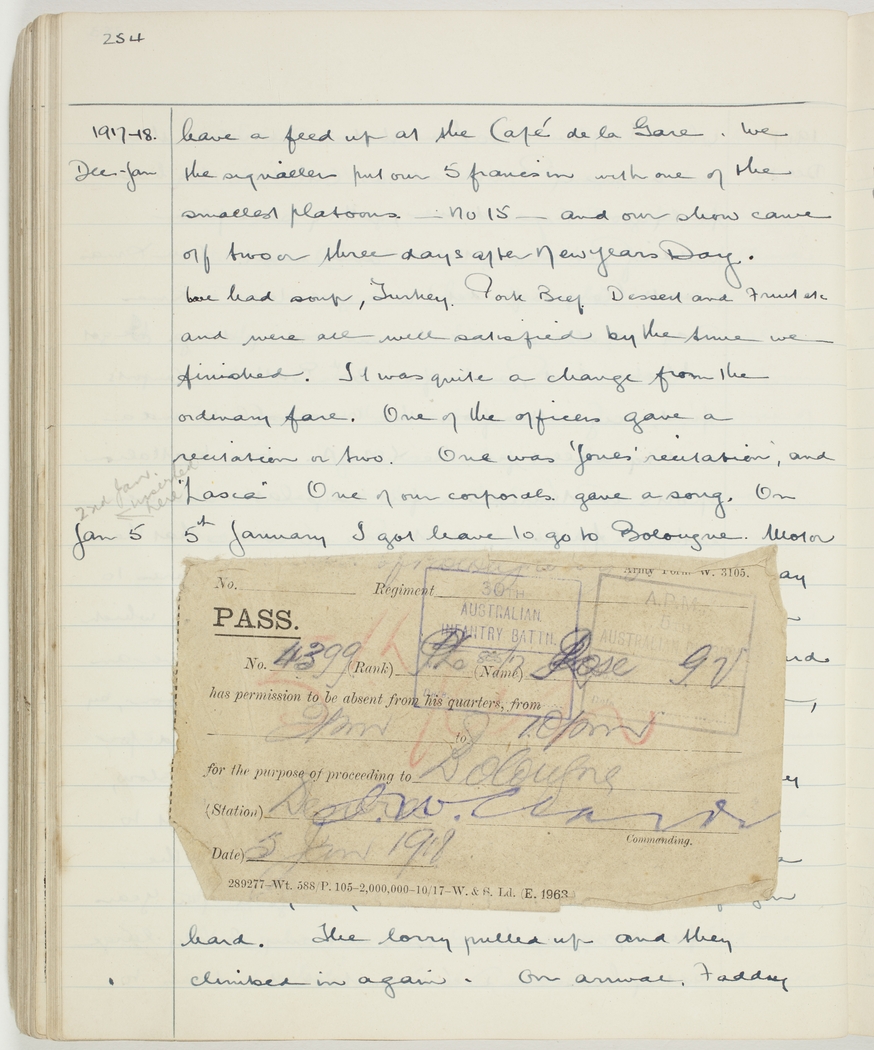 254
1917-18.
Dec-Jan
have a feed up at the Café de la Gare. We
the signallers put our 5 francs in with one of the
smallest platoons — No 15 — and our show came
off two or three days after New Years Day.
We had soup, Turkey, Pork Beef Dessert and Fruit etc
and were all well satisfied by the time we
finished. It was quite a change from the
ordinary fare. One of the officers gave a
recitation or two. One was 'Jones' recitation', and
"Lasca" One of our corporals gave a song. On
2nd Jan.
inserted
here
Jan 5
5th January I got leave to go to Bolougne. Motor
Army Form W. 3105.
No. Regiment
30TH
AUSTRALIAN
INFANTRY BATTN.
A.P.M.
5
AUSTRALIAN
PASS.
No. 4399 (Rank) Pte (Name) Rose G V
has permission to be absent from his quarters, from
2pm to 10pm
for the purpose of proceeding to Bolougne
(Station)
Commanding.
Date) 5 Jan 1918
289277—Wt. 588/P. 105—2,000,000—10/17—W. & S. Ld. (E. 1963
hard. The lorry pulled up and they
climbed in again. On arrival, Faddy